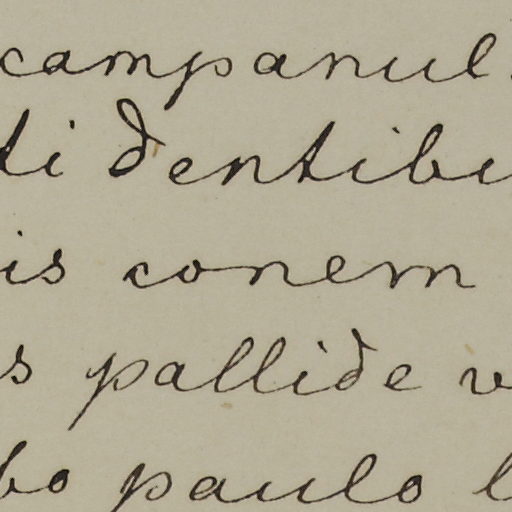 campanul
ti dentibu
is conem
s pallide v
bo paulo l